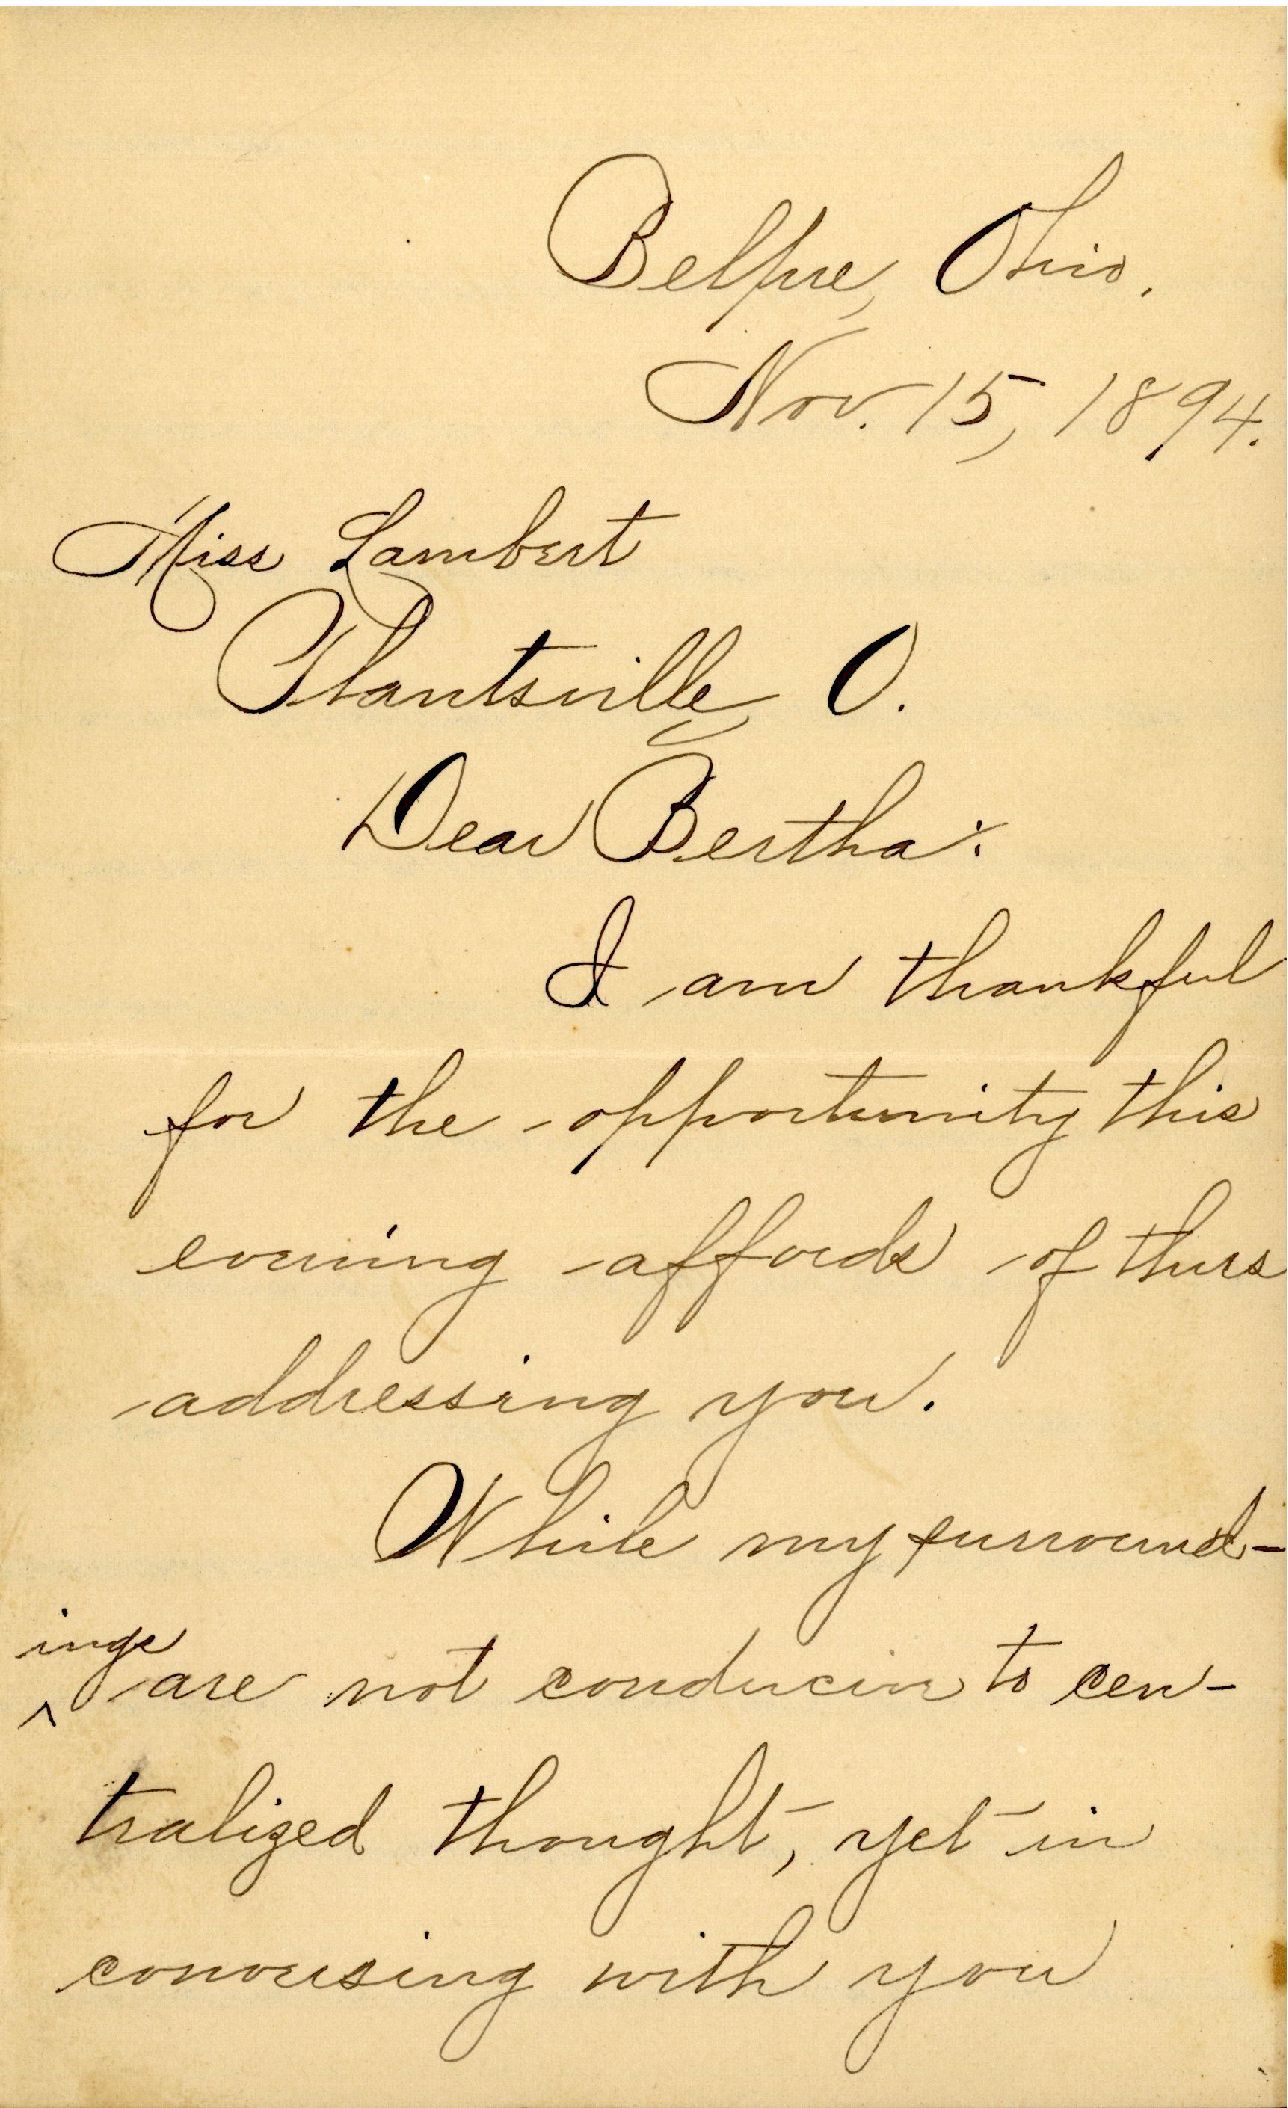 Belpre, Ohio.
Nov. 15, 1894.
Miss Lambert
Plantsville, O.
Dear Bertha:
I am thankful
for the opportunity this
evening affords of thus
addressing you.
While my surround-
ings
^ are not conducive to cen-
tralized thought, yet in
conversing with you